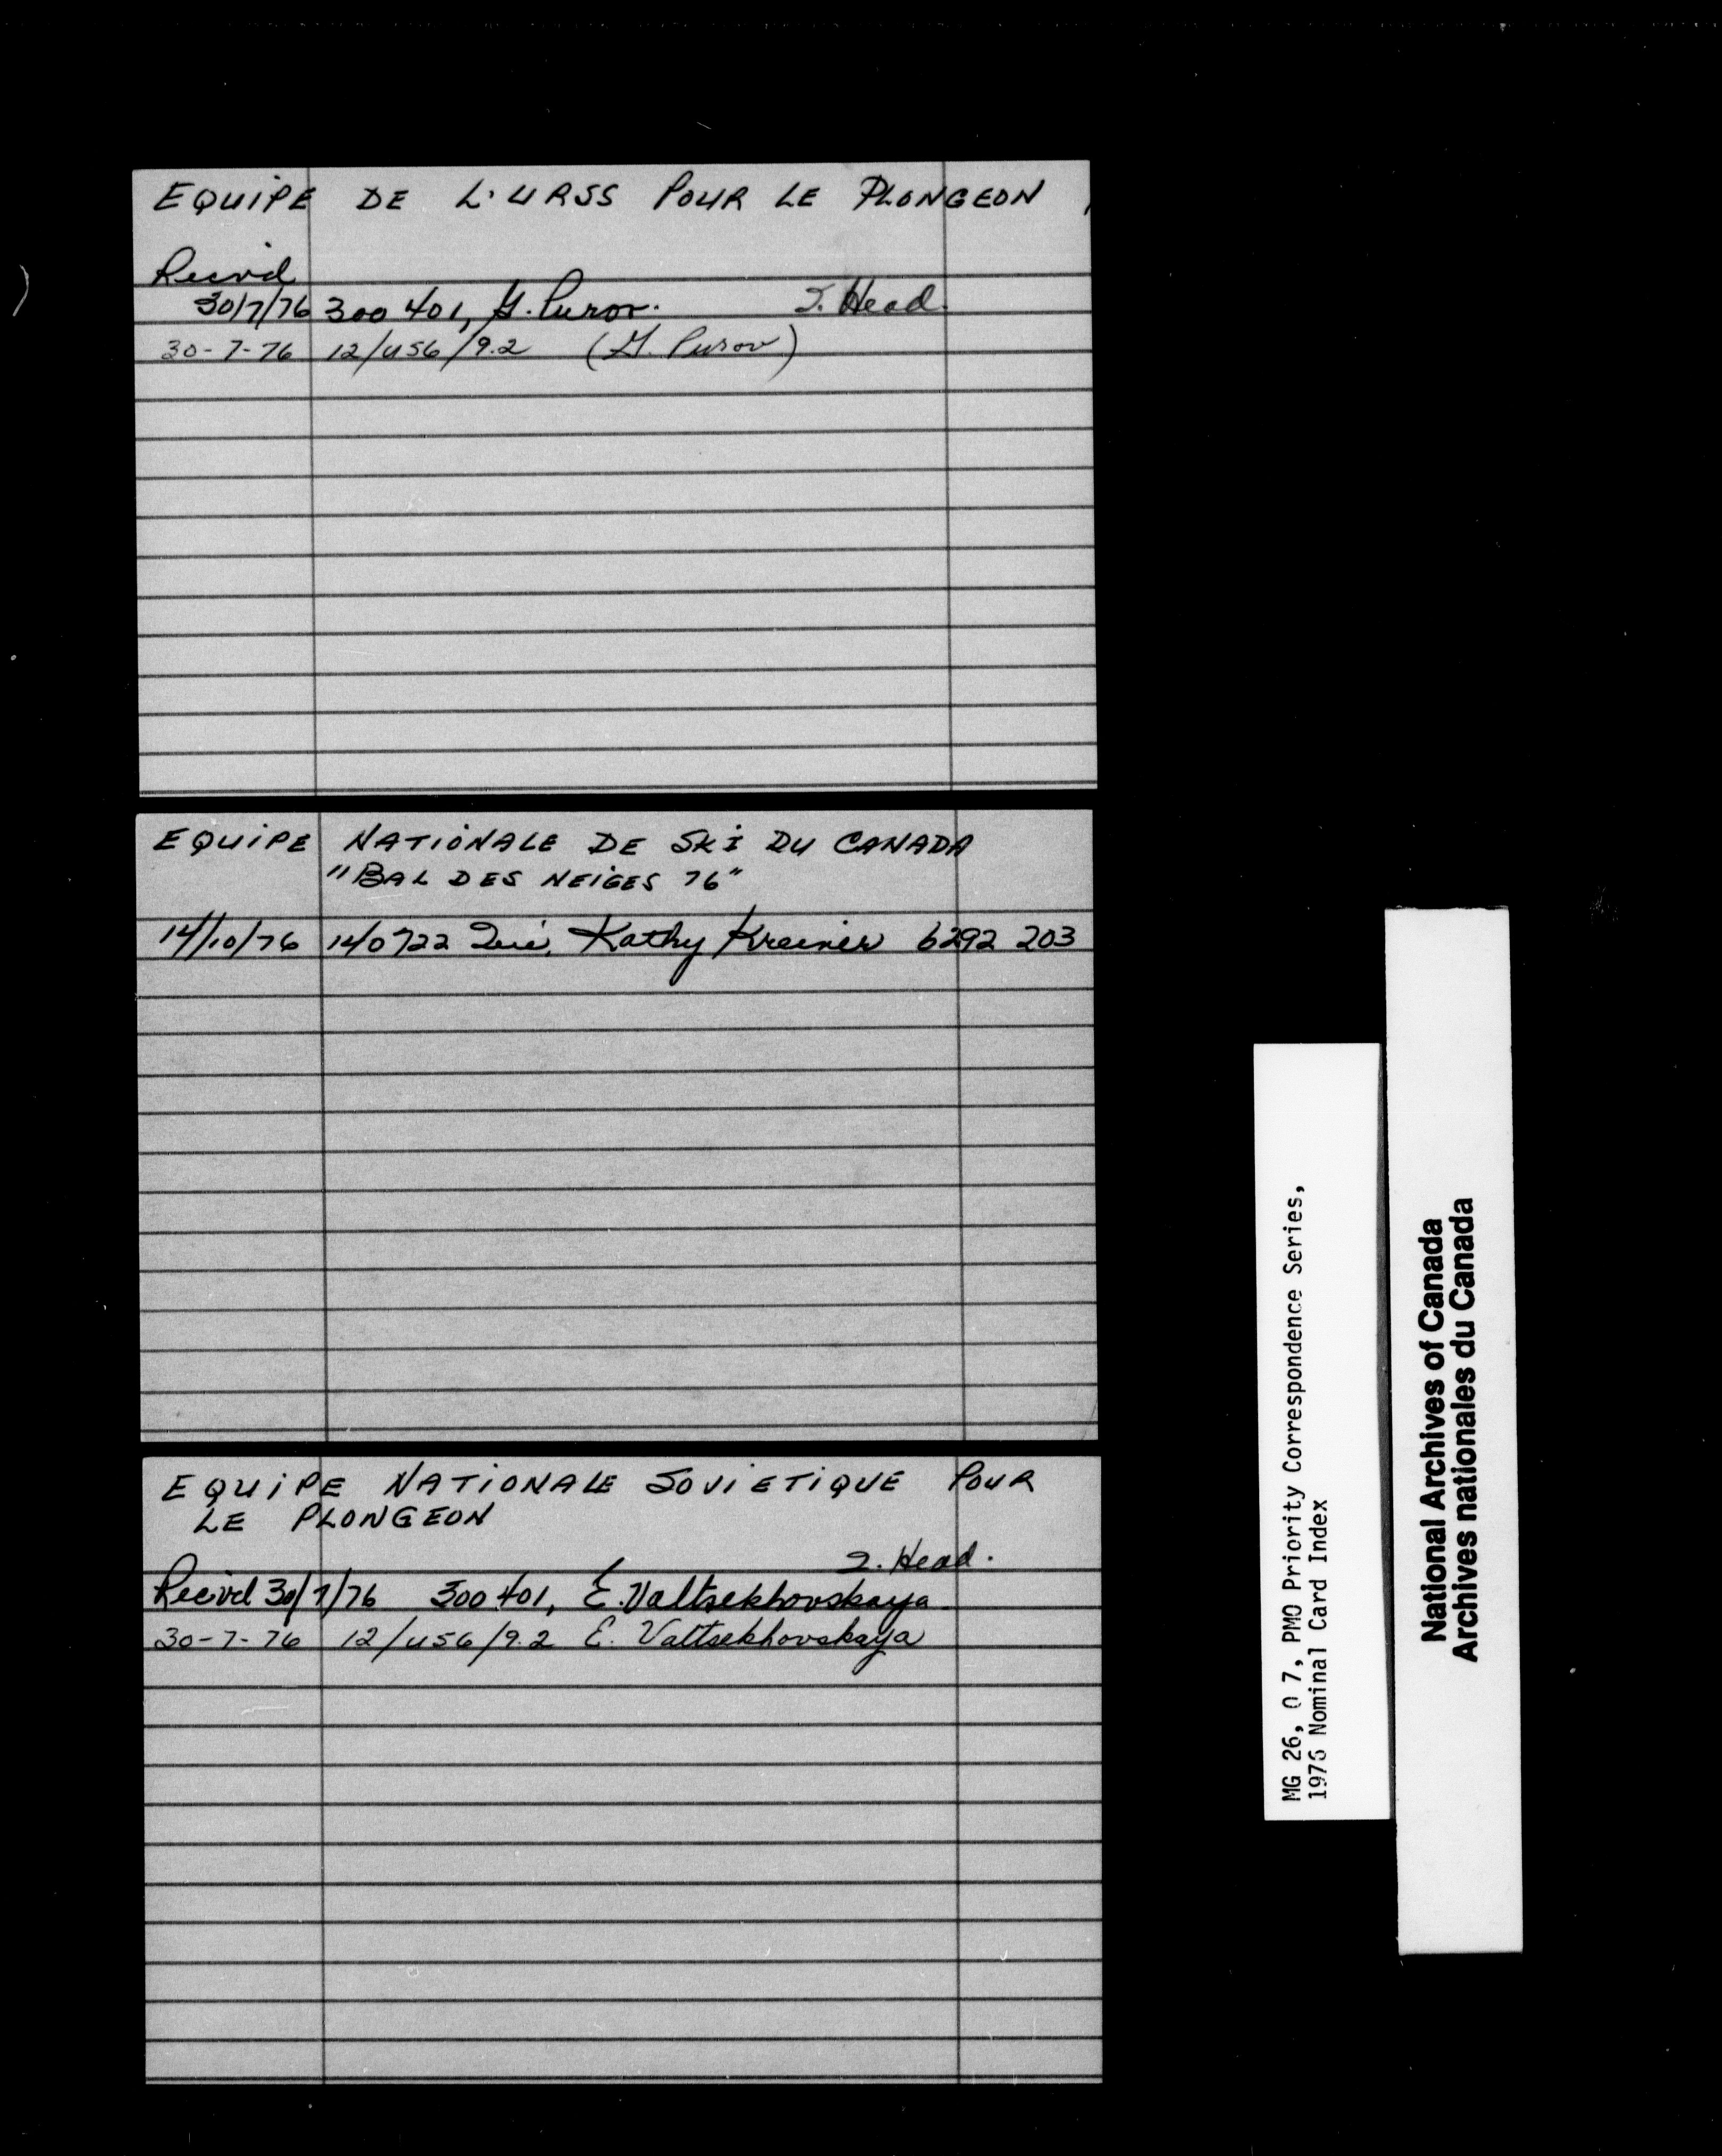 EQUIPE DE L'URSS POUR LE PLONGEON
Recivd
30/7/76 300 401, G. Purov. I. Head.
30-7-76 12/U56/9.2 (G. Purov)
EQUIPE NATIONALE DE SKI DU CANADA
"BAL DES NEIGES 76"
14/10/76 140722 Kathy Kreiner 6292 203
EQUIPE NATIONALE SOVIETIQUE POUR
LE PLONGEON
I. Head.
Recivd 30/7/76 300 401, E. Valtsekhovskaya
30-7-76 12/U56/9.2 E. Valtsekhovskaya
MG 26, O 7, PMO Priority Correspondence Series,
1976 Nominal Card Index
National Archives of Canada
Archives nationales du Canada